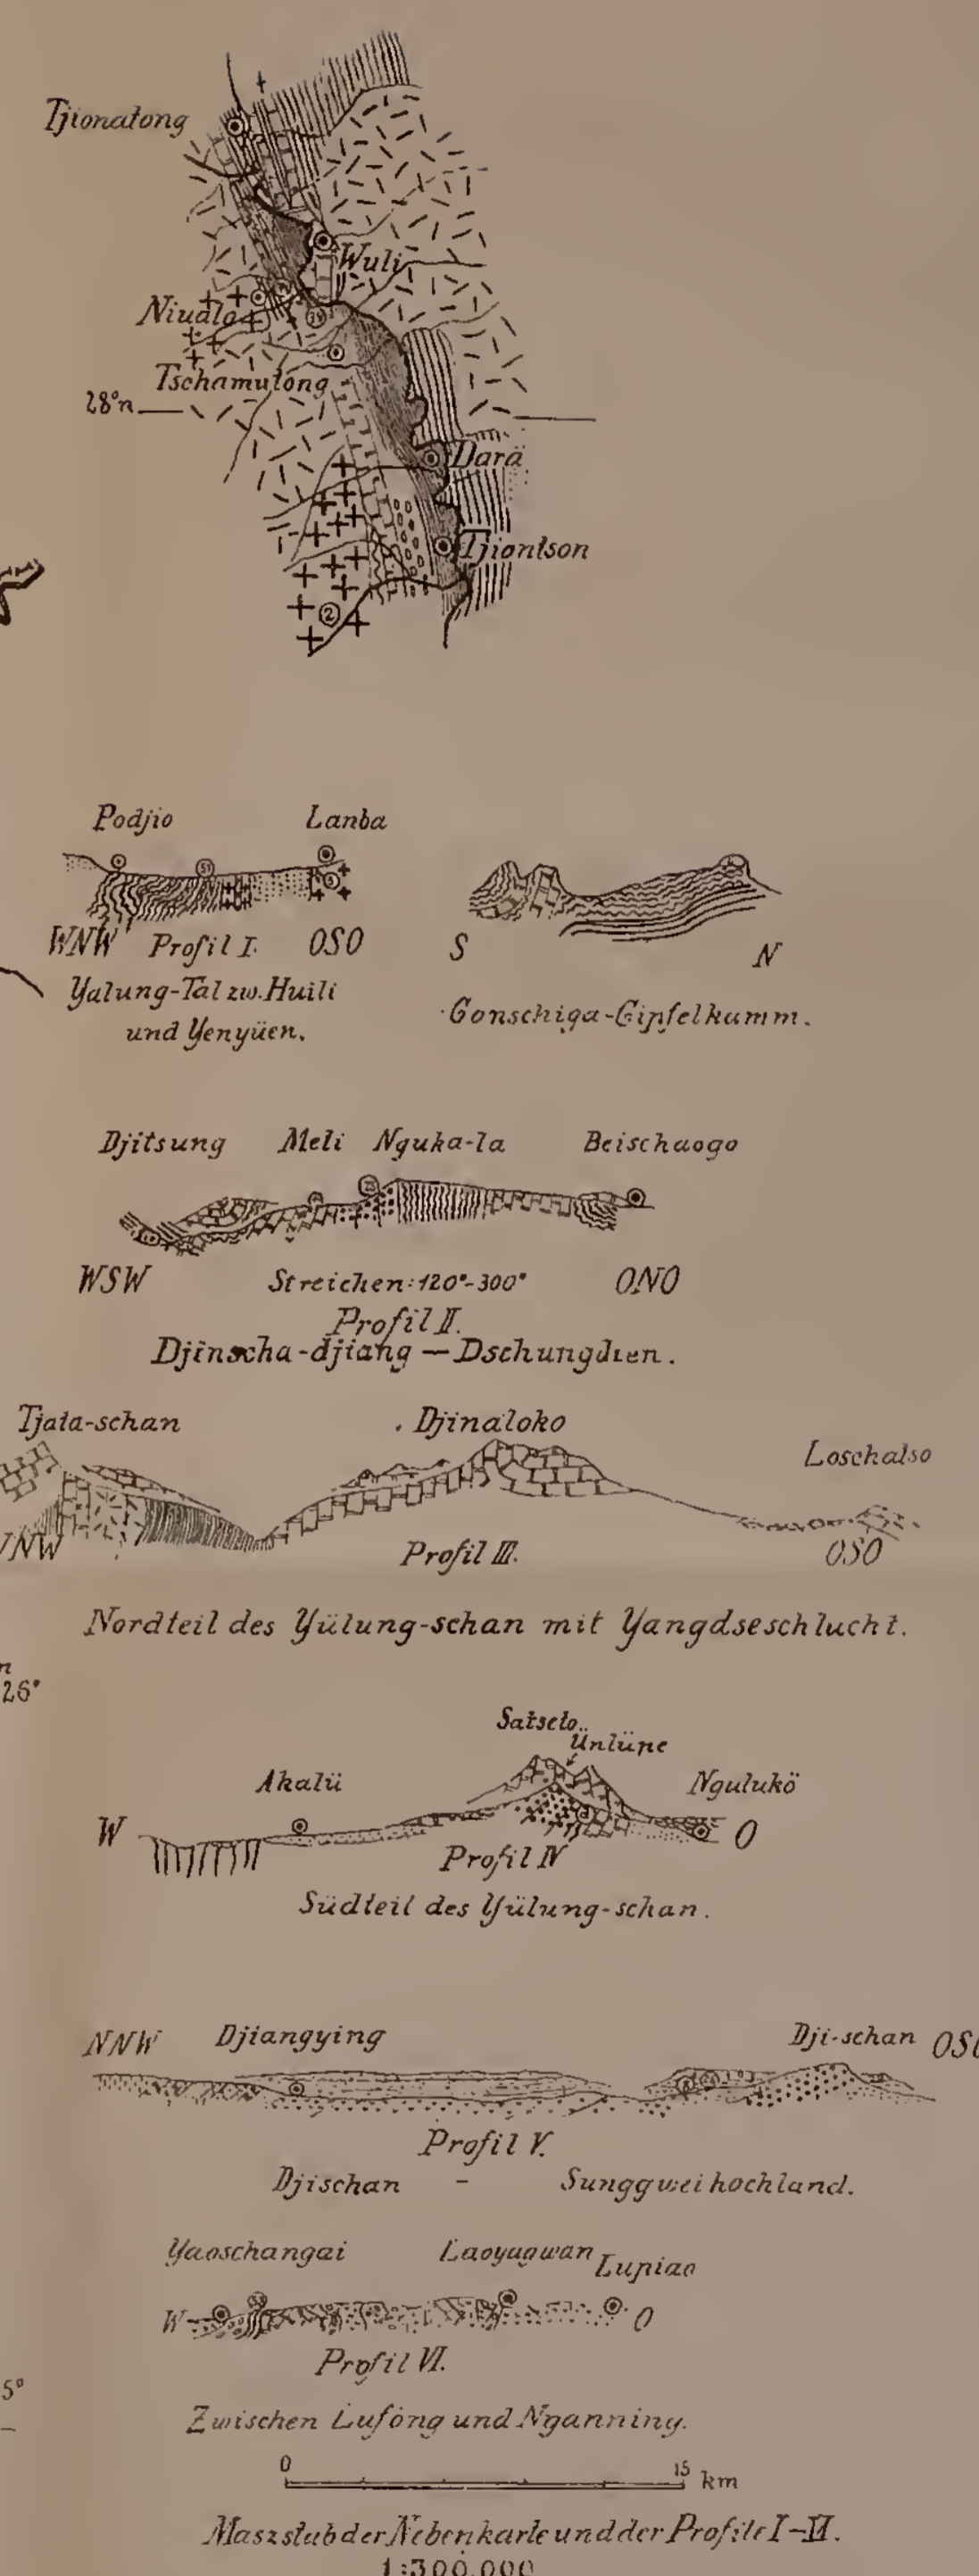 Tjionatong
Wuli
Niualo
Tschamutong
28°n
Darä
Tjiontson
2
Podjio Lanba
51
3
WNW Profil I. OSO
Yalung-Tal zw. Huili
und Yenyüen.
S N
Gonschiga-Gipfelkamm.
Djitsung Meli Nguka-la Beischaogo
WSW Streichen: 120°-300° ONO
Profil II.
Djinscha-djiang — Dschungdien.
Tjata-schan Djinaloko Loschatso
WNW Profil III. OSO
Nordteil des Yülung-schan mit Yangdseschlucht.
26°
Satseto
Ünlüpe
Akalü Ngulukö
W O
Profil IV
Südteil des Yülung-schan.
NNW Djiangying Dji-schan
Profil V.
Djischan - Sunggweihochland.
Yaoschangai Laoyagwan Lupiao
W O
Profil VI.
Zwischen Lufông und Nganning.
0 15 km
Maszstab der Nebenkarte und der Profile I-VI.
1:300.000